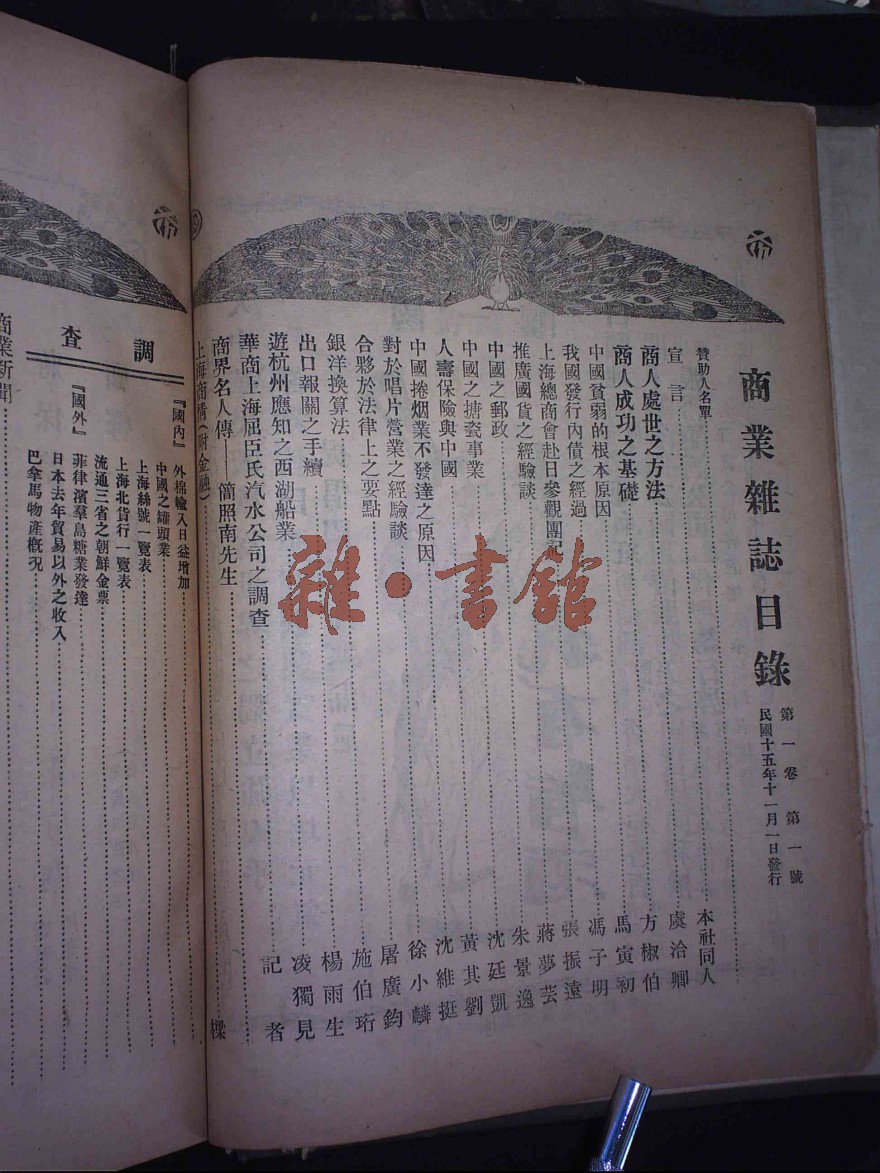 商業雜誌目錄
第一卷 第一號
民國十五年十一月一日發行
贊助人名單
宣言 本社同人
商人處世之方法 虞洽卿
商人成功之基礎 方椒伯
中國貧弱的根本原因 馬寅初
我國發行內債之經過 馮子明
上海總商會赴日參觀團記 張振遠
推廣國貨之經驗談 蔣夢芸
中國之郵政 朱景逸
中國之搪瓷事業 沈廷凱
人壽保險與中國 黃其劉
中國捲烟業不發達之原因 沈維挺
對於唱片營業之經驗談 徐小麟
合夥於法律上之要點 屠廣鈞
銀洋換算法 施伯珩
出口報關之手續 楊雨生
遊杭州應知之西湖船業 凌獨見
華商上海屈臣氏汽水公司之調查 記者
商界名人傳——簡照南先生
上海商情(附金融) 樑
調查
『國內』 外棉輸入日益增加
中國之罐頭業
上海絲號一覽表
上海北貨行一覽表
流通三省之朝鮮金票
『國外』 菲律濱羣島糖業發達
日本去年貿易以外之收入
巴拿馬物產概况
商業新聞
雜·書館